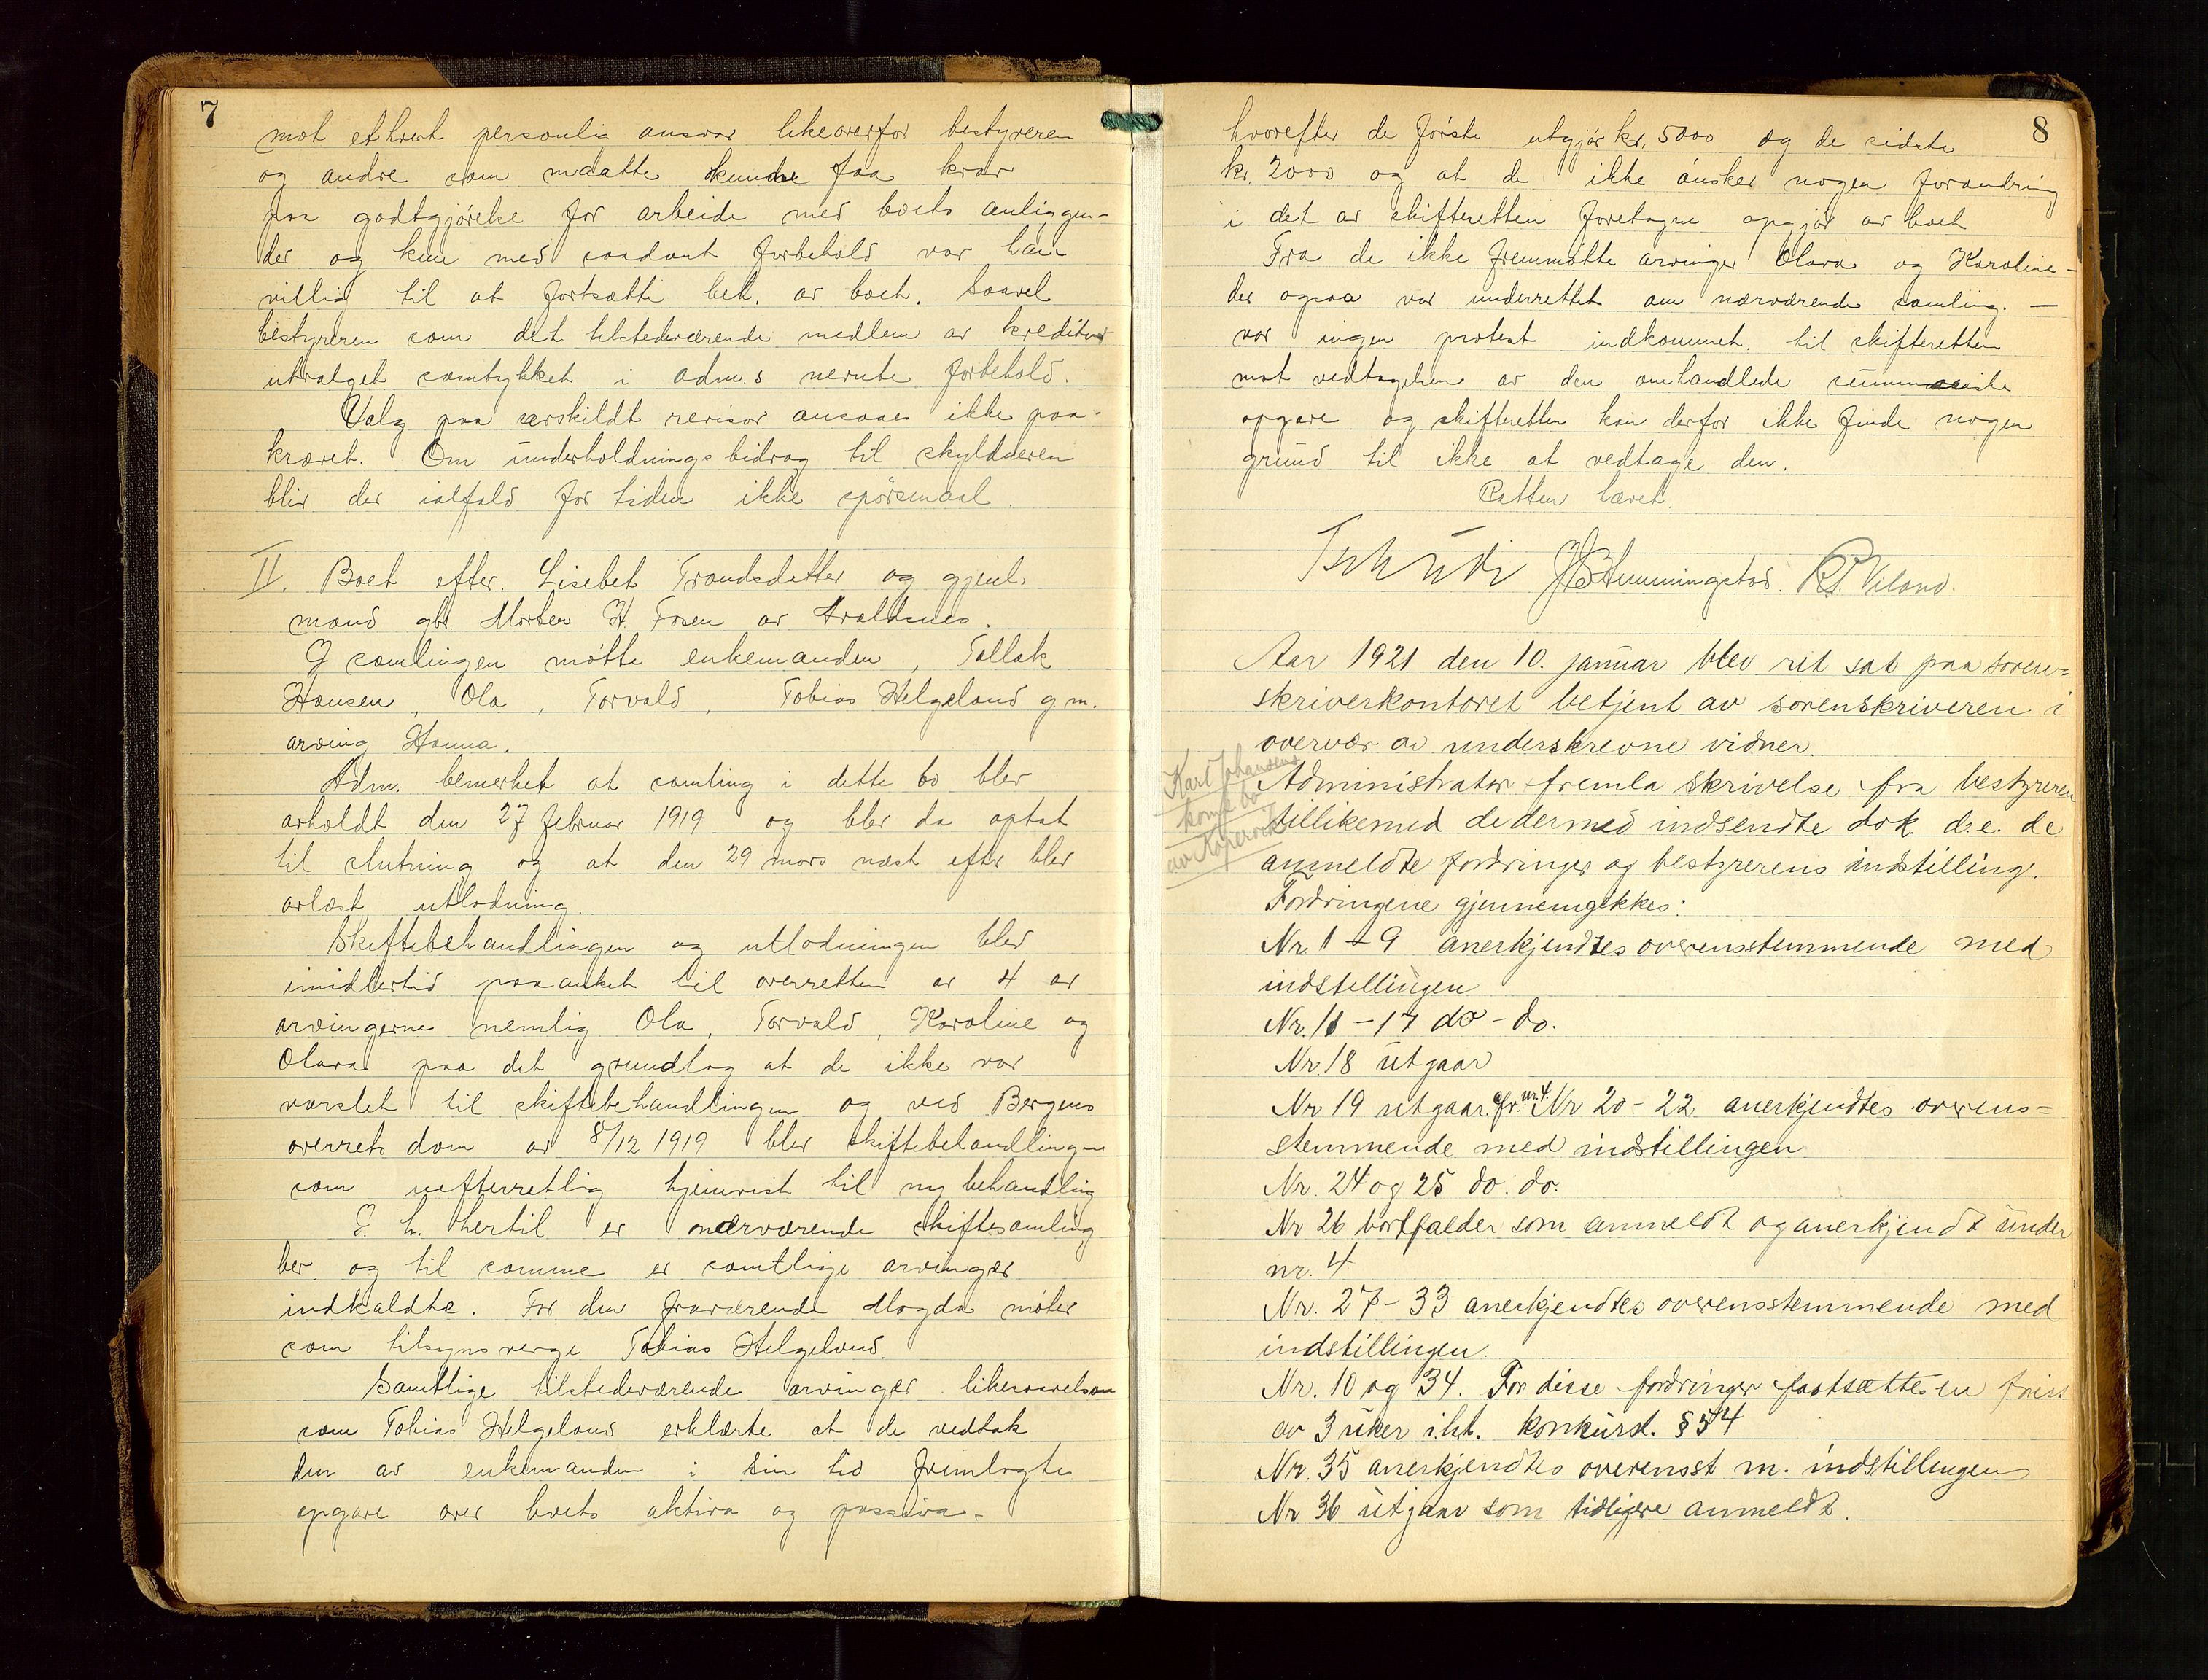 7
mot ethvert personlig ansvar likeoverfor bestyreren
og andre som maatte kunde faa krav
paa godtgjørelse for arbeide med boets anliggen-
der og kun med saadant forbehold var han
villig til at fortsætte beh. av boet. Saavel
bestyreren som det tilstedeværende medlem av kreditor
utvalget samtykket i adm.s nevnte forbehold.
Valg paa særskildt revisor ansaaes ikke paa-
krævet. Om underholdningsbidrag til skyldneren
blir der ialfald for tiden ikke spörsmaal.
II. Boet efter Lisebet Trondsdatter og gjenl.
mand gbr. Morten H. Fosen av Avaldsnes.
I samlingen møtte enkemanden, Tallak
Hansen, Ola, Torvald, Tobias Helgeland g.m.
arving Hanna.
Adm. bemerket at samling i dette bo blev
avholdt den 27 februar 1919 og blev da optat
til slutning og at den 29 mars næst efter blev
avlæst utlodning.
Skiftebehandlingen og utlodningen blev
imidlertid paaanket til overretten av 4 av
arvingerne nemlig Ola, Torvald, Karoline og
Olava paa det grundlag at de ikke var
varslet til skiftebehandlingen og ved Bergens
overrets dom av 8/12 1919 blev skiftebehandlingen
som uefterretlig hjemvist til ny behandling
I h. hertil er nærværende skiftesamling
ber. og til samme er samtlige arvinger
indkaldte. For den fraværende Magda møter
som tilsynsverge Tobias Helgeland.
Samtlige tilstedeværende arvinger likesaavelsom
som Tobias Helgeland erklærte at de vedtok
den av enkemanden i sin tid fremlagte
opgave over boets aktiva og passiva-
8
hvorefter de første utgjør kr. 5000 og de sidste
kr. 2000 og at de ikke ønsker nogen forandring
i det av skifteretten foretagne opgjør av boet
Fra de ikke fremmøtte arvinger Olava og Karoline -
der ogsaa var underrettet om nærværende samling. -
var ingen protest indkommet til skifteretten
mot vedtagelsen av den omhandlede summariske
opgave og skifteretten kan derfor ikke finde nogen
grund til ikke at vedtage den.
Retten hævet.
Tschudi J B Hemmingstad. R. P. Viland.
Aar 1921 den 10. januar blev ret sat paa soren=
skriverkontoret betjent av sorenskriveren i
overvær av underskrevne vidner.
Karl Johansens
konk bo
av Kopervik
Administrator fremla skrivelse fra bestyreren
tillikemed de dermed indsendte dok. d.e. de
anmeldte fordringer og bestyrerens indstilling.
Fordringene gjennemgikkes:
Nr. 1 - 9 anerkjendtes overensstemmende med
indstillingen
Nr. 11 - 17 do - do.
Nr. 18 utgaar
Nr 19 utgaar cfr. nr. 4. Nr 20 - 22 anerkjendtes overens=
stemmende med indstillingen
Nr. 24 og 25 do. do.
Nr 26 bortfalder som anmeldt og anerkjendt under
nr. 4
Nr. 27 - 33 anerkjendtes overensstemmende med
indstillingen.
Nr. 10 og 34. For disse fordringer fastsættes en frist
av 3 uker i.ht. konkursl. § 54
Nr. 35 anerkjendtes overensst m. indstillingen
Nr 36 utgaar som tidligere anmeldt.